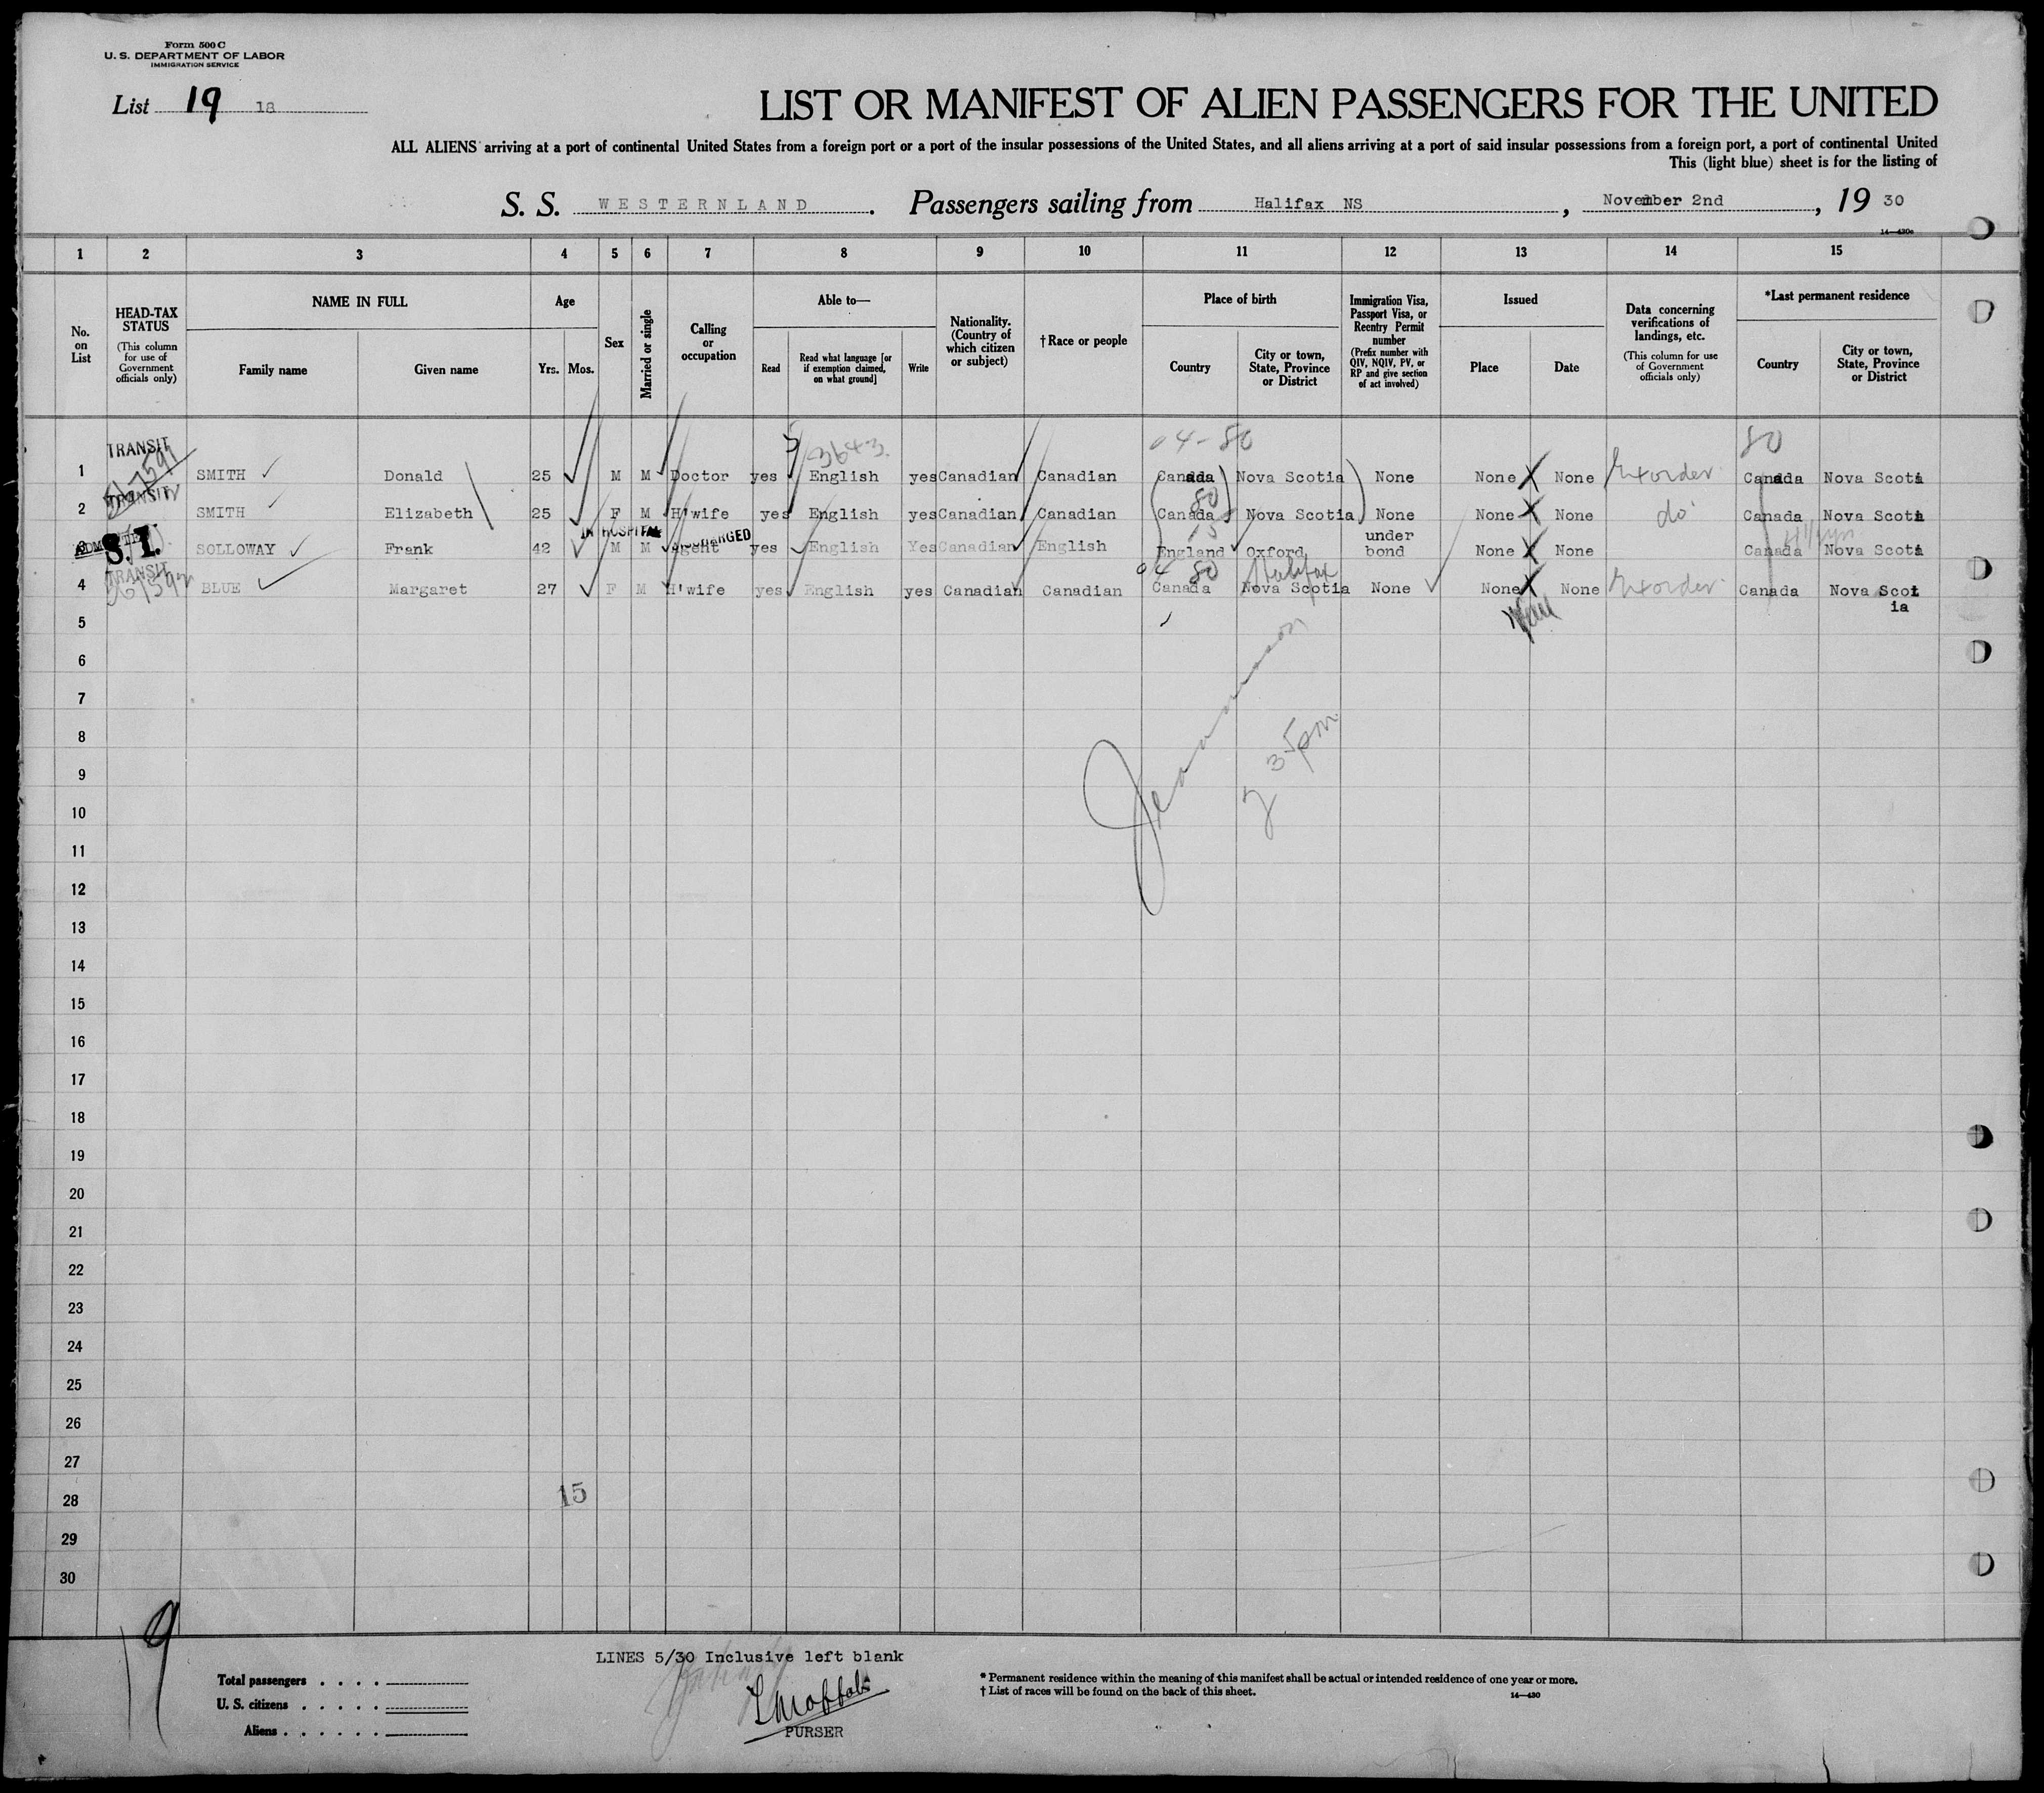 Form 500 C
U. S. DEPARTMENT OF LABOR
IMMIGRATION SERVICE
List 19 18
LIST OR MANIFEST OF ALIEN PASSENGERS FOR THE UNITED
ALL ALIENS arriving at a port of continental United States from a foreign port or a port of the insular possessions of the United States, and all aliens arriving at a port of said insular possessions from a foreign port, a port of continental United
This (light blue) sheet is for the listing of
S. S. WESTERNLAND. Passengers sailing from Halifax NS, November 2nd, 19 30
14—430c
1 2 3 4 5 6 7 8 9 10 11 12 13 14 15
No. on List
HEAD-TAX STATUS
(This column for use of Government officials only)
NAME IN FULL
Family name
Given name
Age
Yrs.
Mos.
Sex
Married or single
Calling or occupation
Able to—
Read
Read what language [or if exemption claimed, on what ground]
Write
Nationality. (Country of which citizen or subject)
†Race or people
Place of birth
Country
City or town, State, Province or District
Immigration Visa, Passport Visa, or Reentry Permit number
(Prefix number with QIV, NQIV, PV, or RP and give section of act involved)
Issued
Place
Date
Data concerning verifications of landings, etc.
(This column for use of Government officials only)
*Last permanent residence
Country
City or town, State, Province or District
TRANSIT 3643 04-80 80
1 SMITH Donald 25 M M Doctor yes English yes Canadian Canadian Canada Nova Scotia None None None Canada Nova Scoti
TRANSIT 80
2 SMITH Elizabeth 25 F M H'wife yes English yes Canadian Canadian Canada Nova Scotia None None None do Canada Nova Scoti
IN HOSPITAL DISCHARGED 15
ADMITTED S. I.
3 SOLLOWAY Frank 42 M M Agent yes English Yes Canadian English England Oxford under bond None None Canada Nova Scoti
TRANSIT 04 80 Halifax
4 BLUE Margaret 27 F M H'wife yes English yes Canadian Canadian Canada Nova Scotia None None None Canada Nova Scotia
5
6
7
8
9
10
11
12
13
14
15
16
17
18
19
20
21
22
23
24
25
26
27
28 15
29
30
19
LINES 5/30 Inclusive left blank
PURSER
Total passengers
U. S. citizens
Aliens
* Permanent residence within the meaning of this manifest shall be actual or intended residence of one year or more.
† List of races will be found on the back of this sheet.
14—430